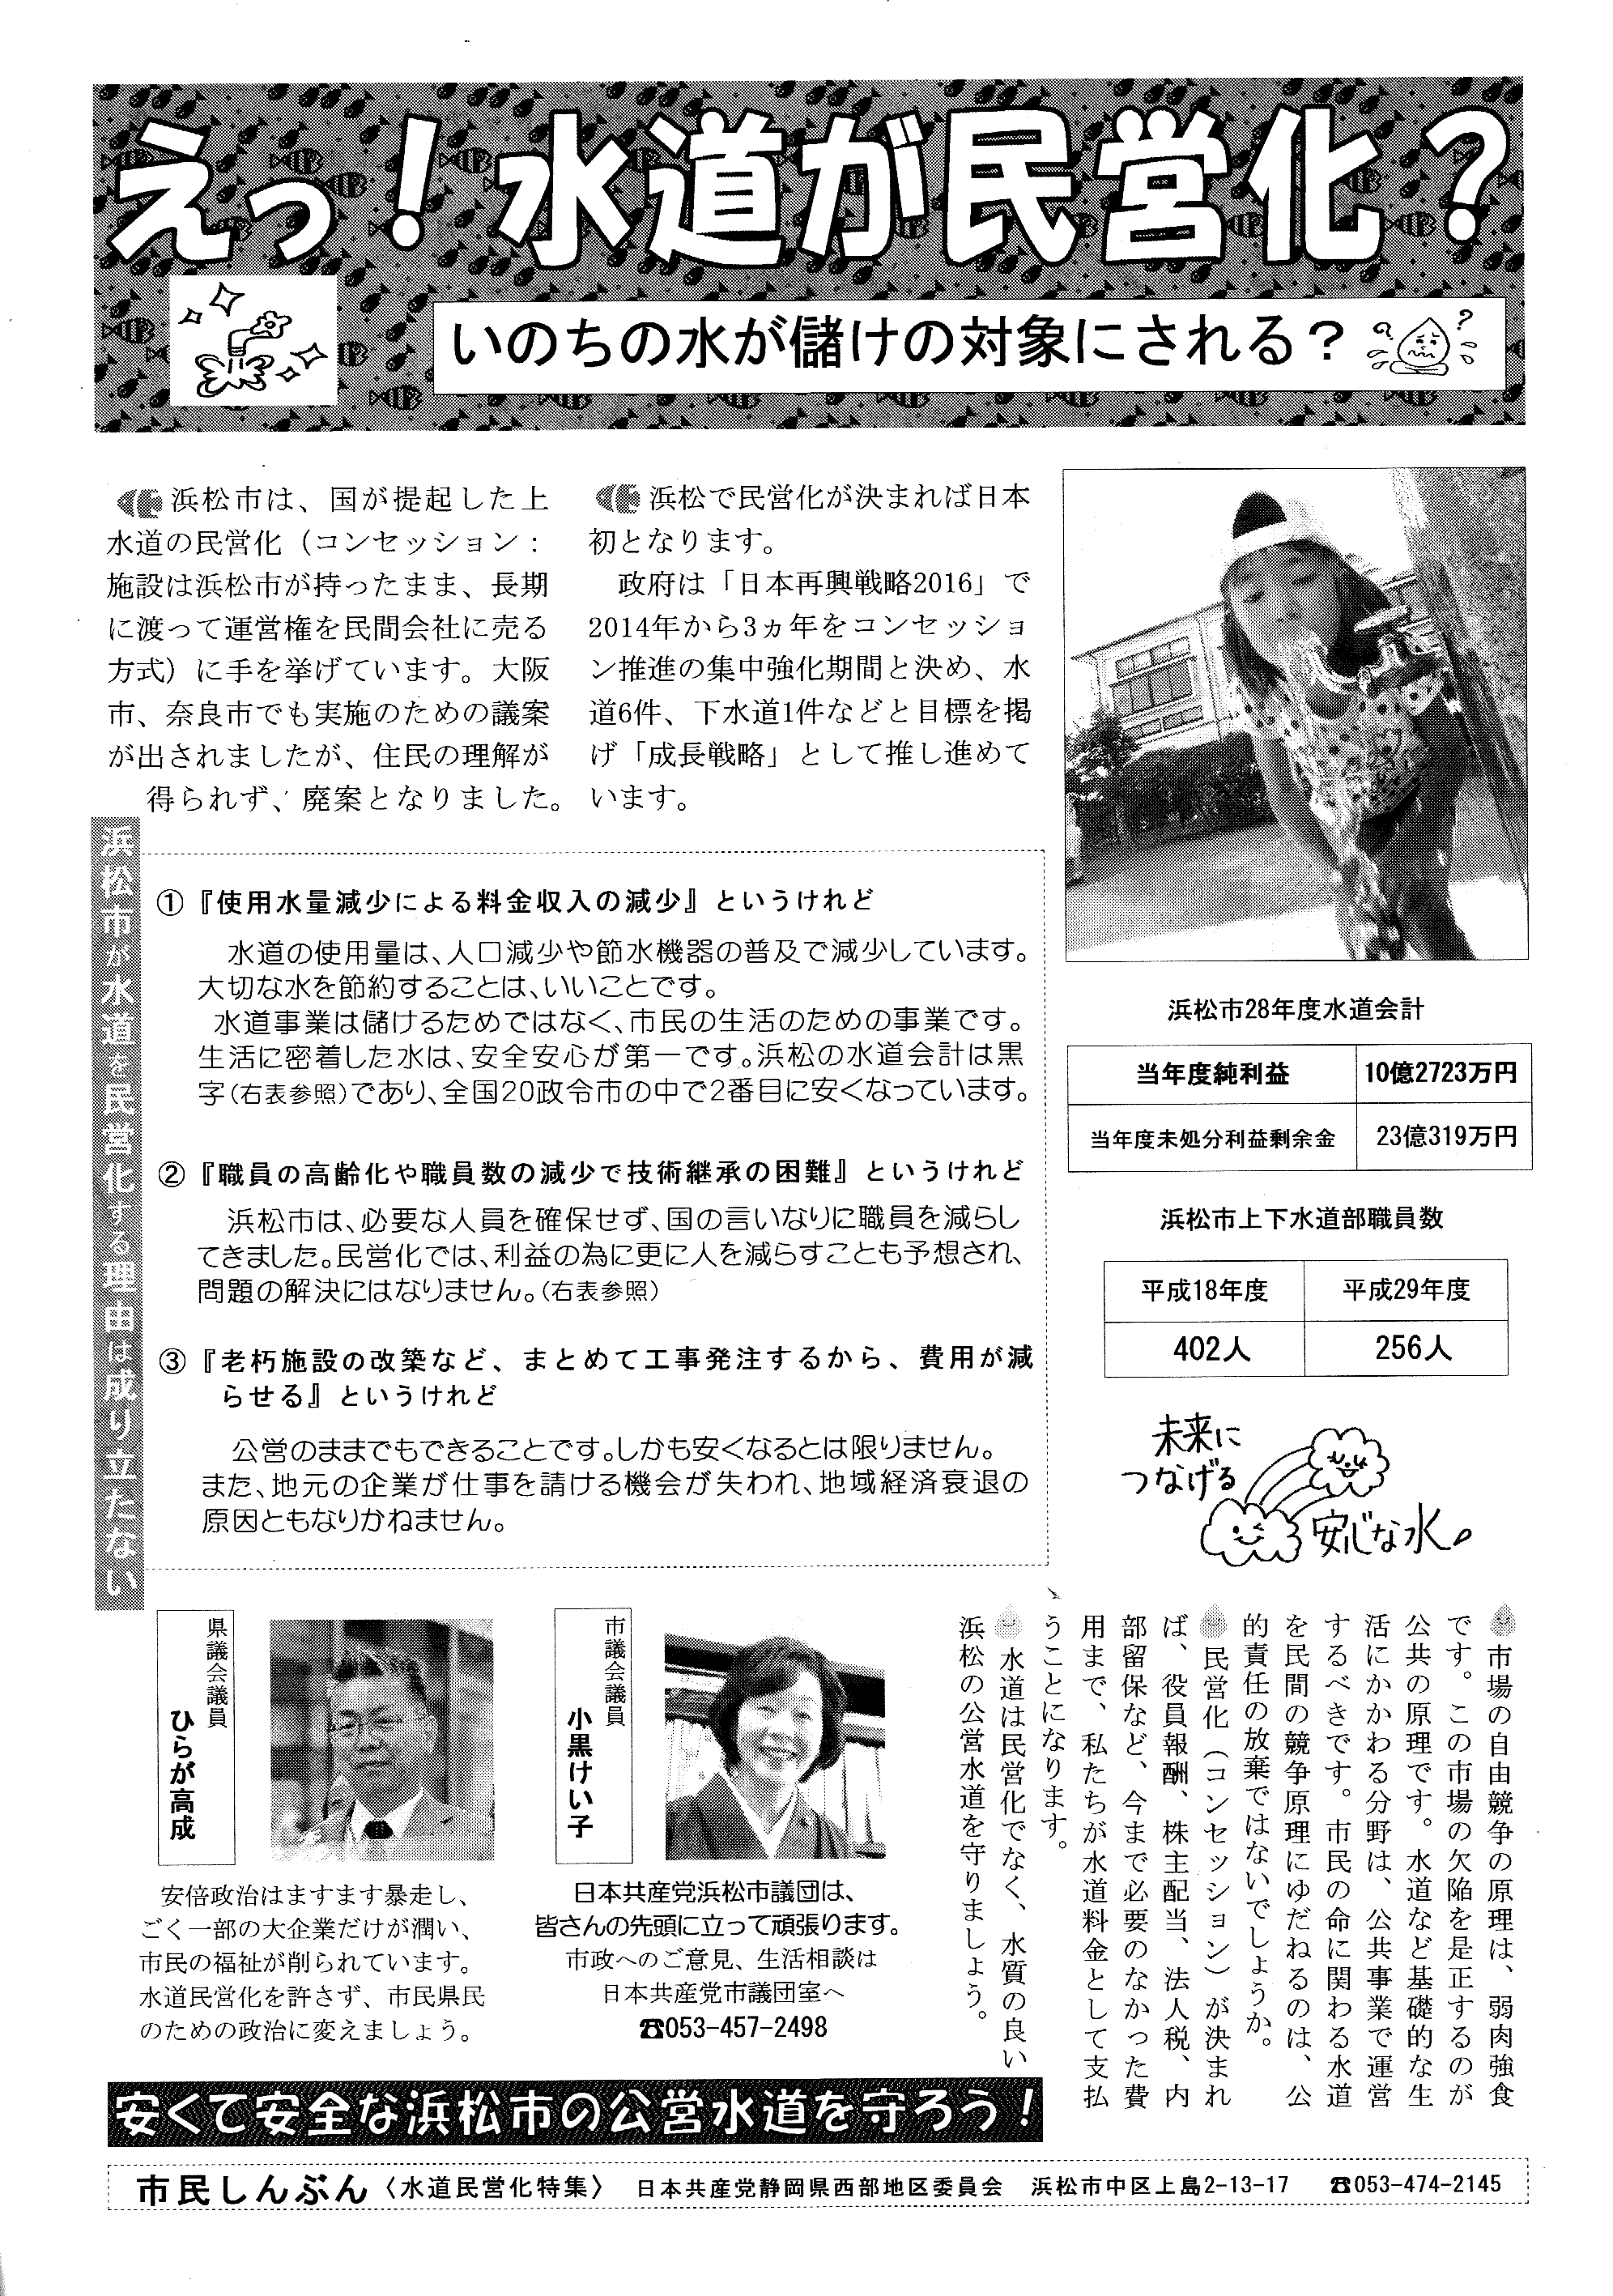 えっ！水道が民営化？
いのちの水が儲けの対象にされる？
浜松市は、国が提起した上
水道の民営化（コンセッション：
施設は浜松市が持ったまま、長期
に渡って運営権を民間会社に売る
方式）に手を挙げています。大阪
市、奈良市でも実施のための議案
が出されましたが、住民の理解が
得られず、廃案となりました。
浜松で民営化が決まれば日本
初となります。
政府は「日本再興戦略2016」で
2014年から3ヵ年をコンセッショ
ン推進の集中強化期間と決め、水
道6件、下水道1件などと目標を掲
げ「成長戦略」として推し進めて
います。
浜松市が水道を民営化する理由は成り立たない
①『使用水量減少による料金収入の減少』というけれど
水道の使用量は、人口減少や節水機器の普及で減少しています。
大切な水を節約することは、いいことです。
水道事業は儲けるためではなく、市民の生活のための事業です。
生活に密着した水は、安全安心が第一です。浜松の水道会計は黒
字（右表参照）であり、全国20政令市の中で2番目に安くなっています。
②『職員の高齢化や職員数の減少で技術継承の困難』というけれど
浜松市は、必要な人員を確保せず、国の言いなりに職員を減らし
てきました。民営化では、利益の為に更に人を減らすことも予想され、
問題の解決にはなりません。（右表参照）
③『老朽施設の改築など、まとめて工事発注するから、費用が減
らせる』というけれど
公営のままでもできることです。しかも安くなるとは限りません。
また、地元の企業が仕事を請ける機会が失われ、地域経済衰退の
原因ともなりかねません。
浜松市28年度水道会計
当年度純利益 10億2723万円
当年度未処分利益剰余金 23億319万円
浜松市上下水道部職員数
平成18年度 平成29年度
402人 256人
未来に
つなげる
安心な水
市場の自由競争の原理は、弱肉強食
です。この市場の欠陥を是正するのが
公共の原理です。水道など基礎的な生
活にかかわる分野は、公共事業で運営
するべきです。市民の命に関わる水道
を民間の競争原理にゆだねるのは、公
的責任の放棄ではないでしょうか。
民営化（コンセッション）が決まれ
ば、役員報酬、株主配当、法人税、内
部留保など、今まで必要のなかった費
用まで、私たちが水道料金として支払
うことになります。
水道は民営化でなく、水質の良い
浜松の公営水道を守りましょう。
県議会議員
ひらが高成
安倍政治はますます暴走し、
ごく一部の大企業だけが潤い、
市民の福祉が削られています。
水道民営化を許さず、市民県民
のための政治に変えましょう。
市議会議員
小黒けい子
日本共産党浜松市議団は、
皆さんの先頭に立って頑張ります。
市政へのご意見、生活相談は
日本共産党市議団室へ
☎053-457-2498
安くて安全な浜松市の公営水道を守ろう！
市民しんぶん〈水道民営化特集〉 日本共産党静岡県西部地区委員会 浜松市中区上島2-13-17 ☎053-474-2145